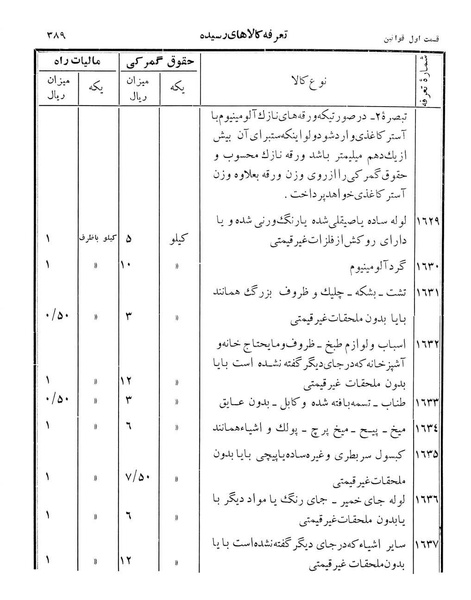 قسمت اول قوانین
تعرفه کالاهای رسیده
۳۸۹
شمارهٔ تعرفه
نوع کالا
حقوق گمرکی
مالیات راه
یکه
میزان ریال
یکه
میزان ریال
تبصرهٔ ۲- درصورتیکه ورقه‌های نازک آلومینیوم با
آستر کاغذی وارد شود ولو اینکه ستبرای آن بیش
از یک‌دهم میلیمتر باشد ورقه نازک محسوب و
حقوق گمرکی را از روی وزن ورقه بعلاوه وزن
آستر کاغذی خواهد پرداخت .
۱۶۲۹ لوله ساده یا صیقلی شده یا رنگ ورنی شده و یا
دارای روکش از فلزات غیر قیمتی کیلو ۵ کیلو باظرف ۱
۱۶۳۰ گرد آلومینیوم » ۱۰ » ۱
۱۶۳۱ تشت ـ بشکه ـ چلیک و ظروف بزرگ همانند
با یا بدون ملحقات غیر قیمتی » ۳ » ۰/۵۰
۱۶۳۲ اسباب و لوازم طبخ ـ ظروف و مایحتاج خانه و
آشپزخانه که در جای دیگر گفته نشده است با یا
بدون ملحقات غیر قیمتی » ۱۲ » ۱
۱۶۳۳ طناب ـ تسمه بافته شده و کابل ـ بدون عایق » ۳ » ۰/۵۰
۱۶۳۴ میخ ـ پیچ ـ میخ پرچ ـ پولک و اشیاء همانند » ۶ » ۱
۱۶۳۵ کپسول سربطری و غیره ساده یا پیچی با یا بدون
ملحقات غیر قیمتی » ۷/۵۰ » ۱
۱۶۳۶ لوله جای خمیر ـ جای رنگ یا مواد دیگر با
یا بدون ملحقات غیر قیمتی » ۶ » ۱
۱۶۳۷ سایر اشیاء که در جای دیگر گفته نشده است با یا
بدون ملحقات غیر قیمتی » ۱۲ » ۱